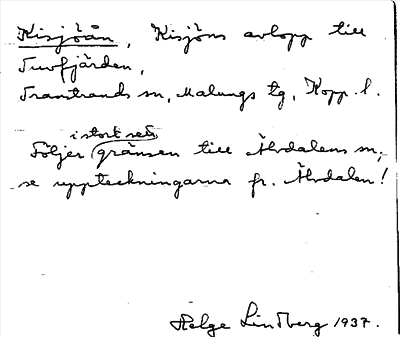 Kisjöån, Kisjöns avlopp till
Turfjärden,
Transtrands sn, Malungs tg, Kopp. l.
i stort sett
Följer gränsen till Älvdalens sn,
se uppteckningarna fr. Älvdalen!
Helge Lindberg 1937.